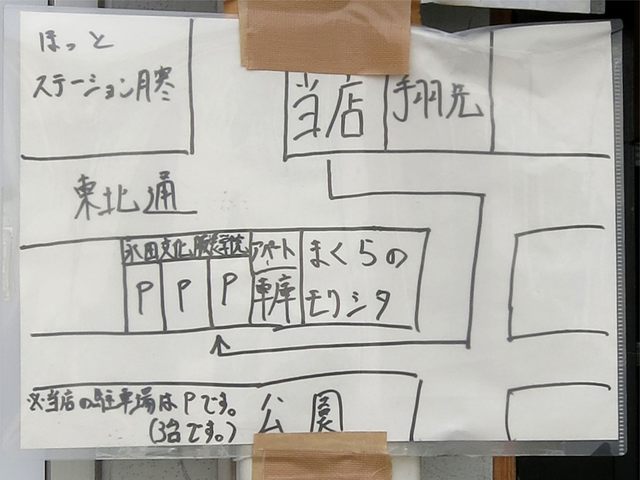 ほっと
ステーション月寒
当店
手羽先
東北通
永田文化服装学院
アパート
まくらの
P
P
P
車庫
モリシタ
※当店の駐車場はPです。
(3台です。)
公園